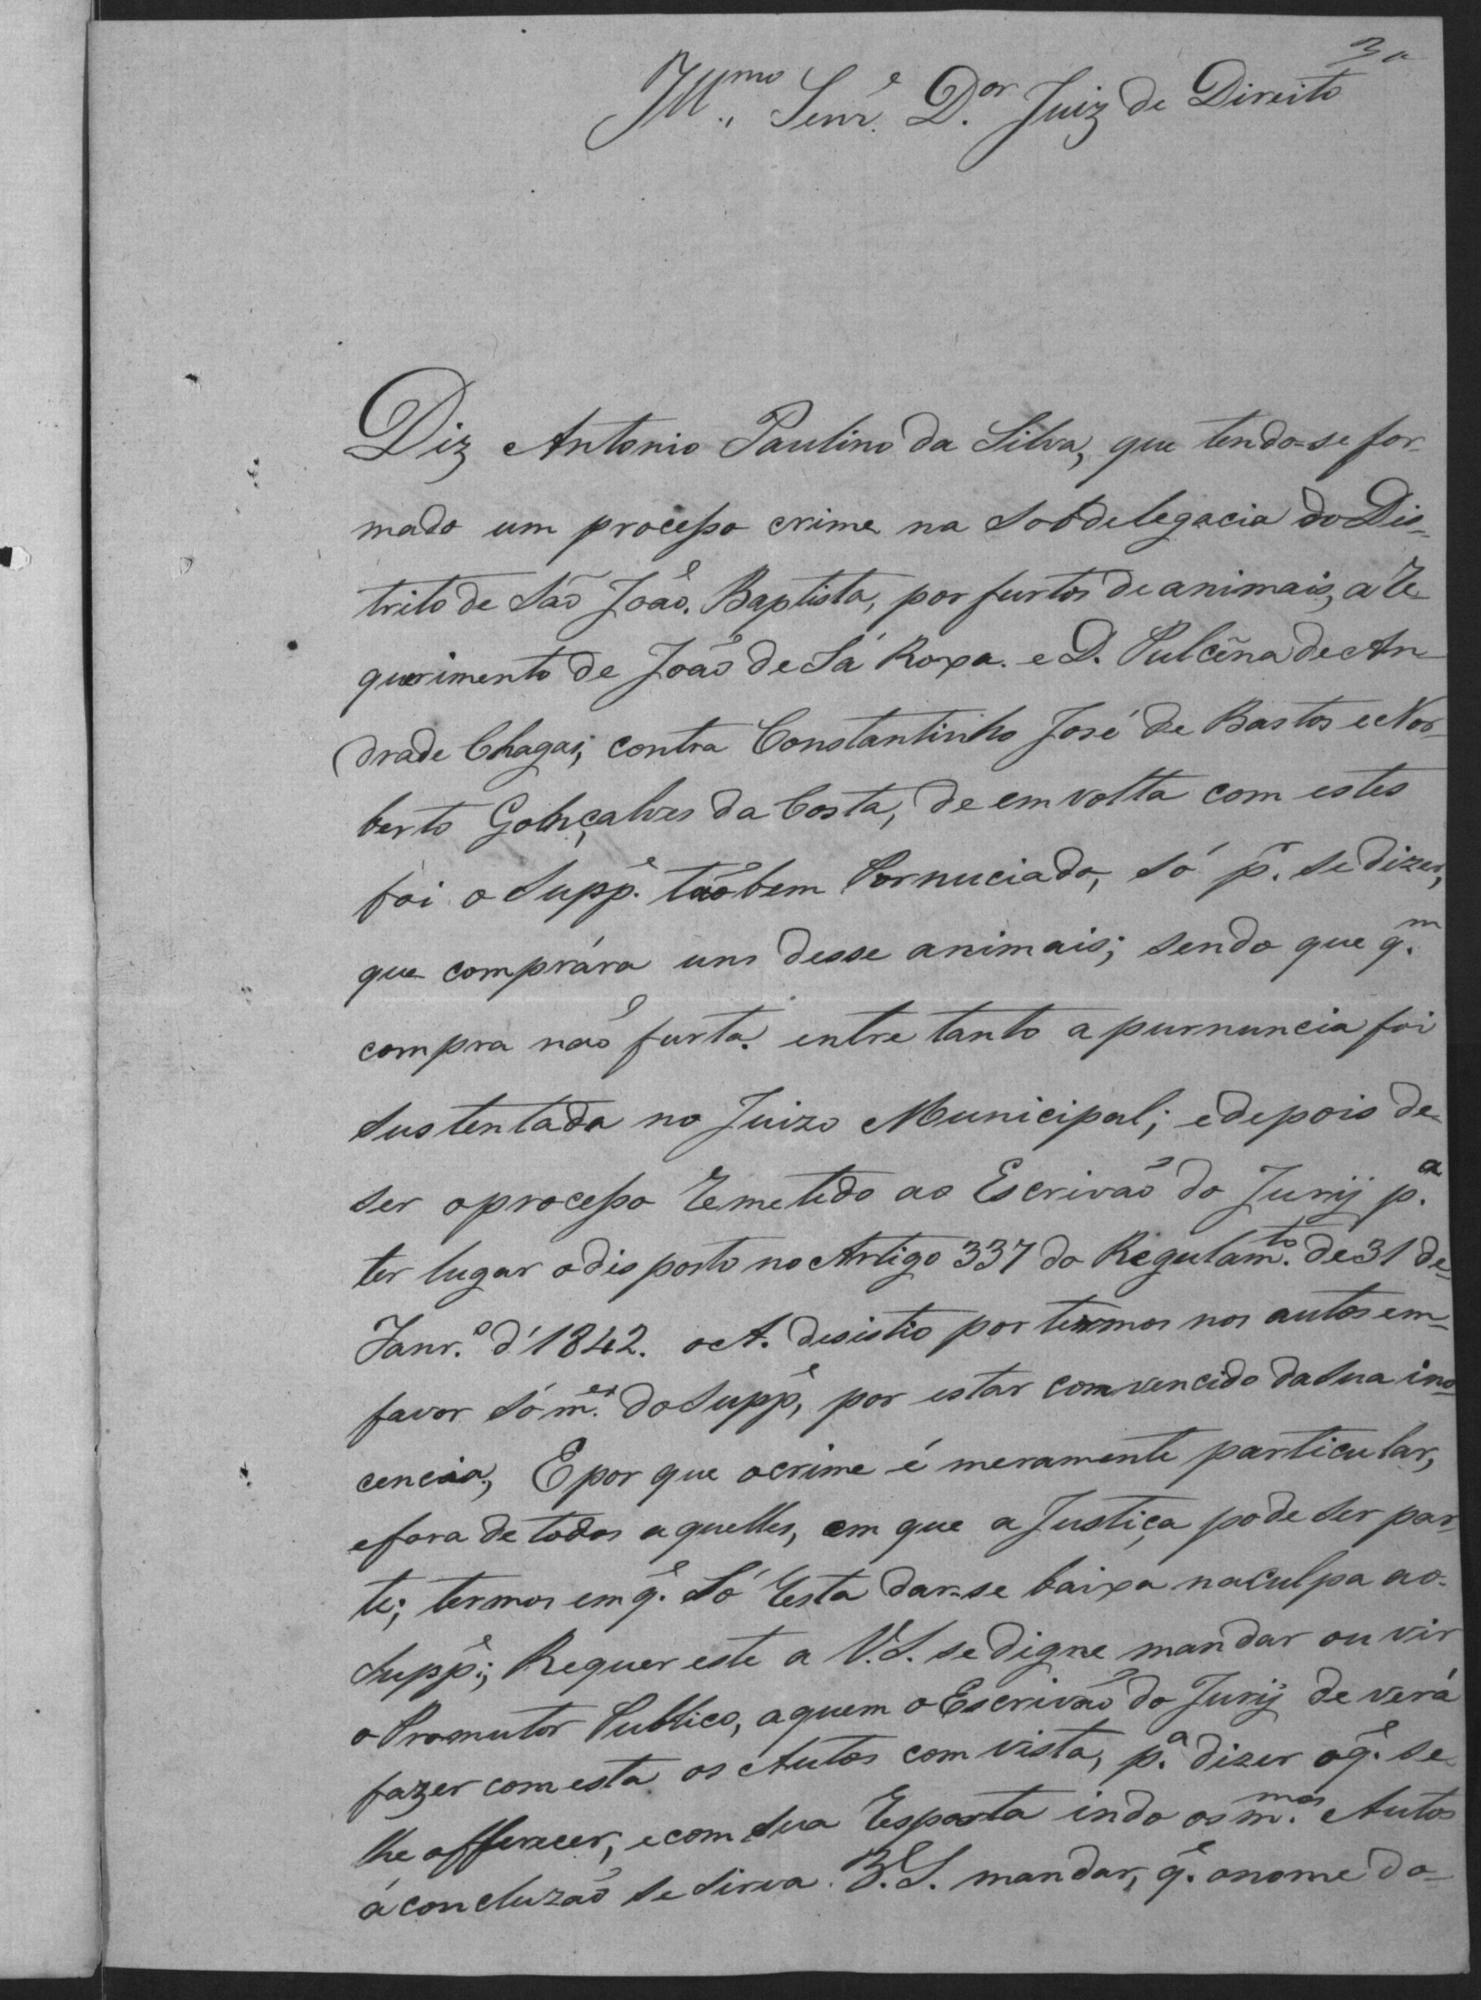 3
Illmo. Senr. Dor. Juiz de Direito
Diz Antonio Paulino da Silva, que tendo-se for-
mado um processo crime na Sobdelegacia do Dis-
trito de São João Baptista, por furtos de animais, a re
querimento de João de Sá Roxa. e D. Pulcena de An-
drade Chagas; contra Constantinho José de Bastos e Nor-
berto Gonçalves da Costa, de em volta com estes
foi o Suppe. tãobem Pornuciado, só pr. se dizer,
que comprára uns desse animais; sendo que qm.
compra não furta. entre tanto a purnuncia foi
Sustentada no Juizo Municipal; e depois de
ser o processo remetido ao Escrivão do Jurij pa.
ter lugar o disposto no Artigo 337 do Regulamto. de 31 de-
Janro. d'1842. o A. desistio por termos nos autos em-
favor sómes. do Suppe, por estar comvencido da Sua ino
cencia, E por que o crime é meramente particular,
e fora de todos aquelles, em que a Justiça pode ser par-
te; termos em qe. Só resta dar-se baixa na culpa ao-
Suppe.; Requer este a V.S. se digne mandar ouvir
o Promutor Publico, a quem o Escrivão do Jurij deverá
fazer com esta os Autos com vista, pa. dizer o qe. se
lhe offerecer, e com sua resposta indo os mmos. Autos
á concluzão se sirva V.S. mandar, qe. o nome do-